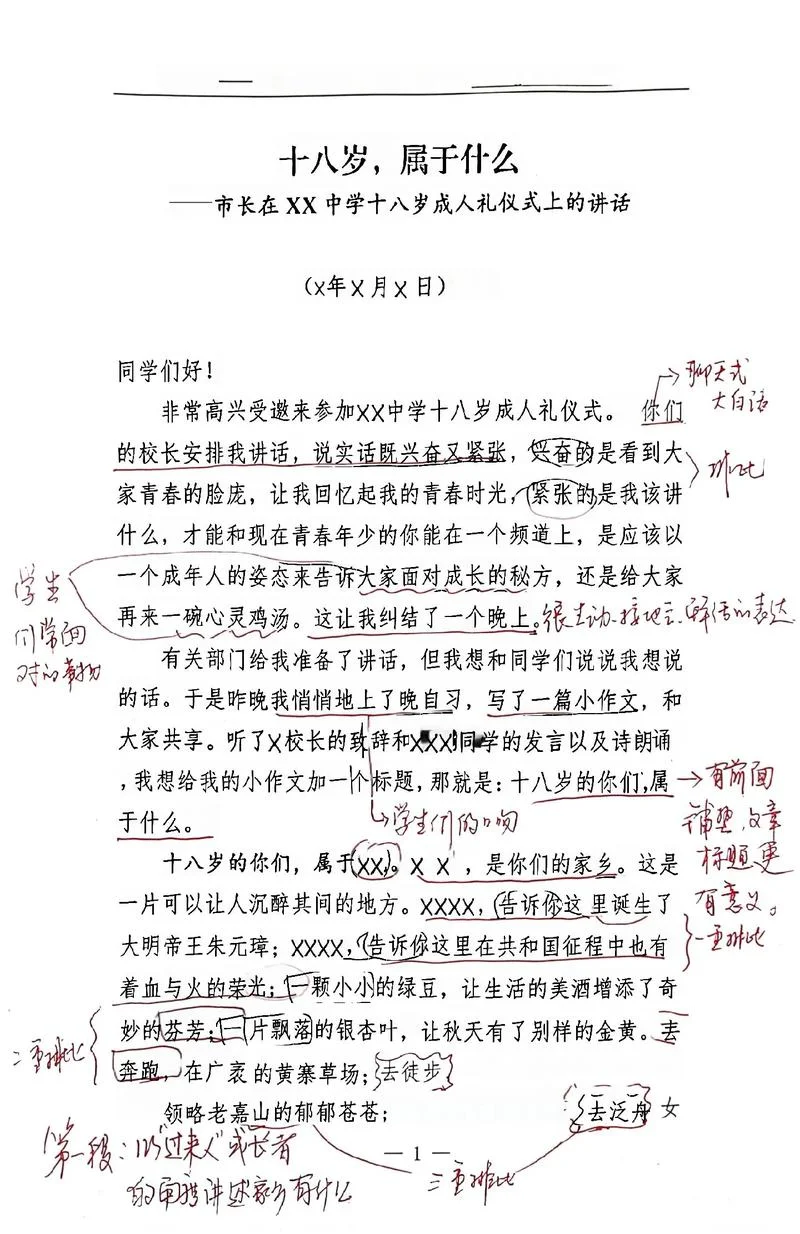 十八岁，属于什么
——市长在 XX 中学十八岁成人礼仪式上的讲话
（X年 X 月 X 日）
同学们好！
聊天式
大白话
非常高兴受邀来参加XX中学十八岁成人礼仪式。 你们
的校长安排我讲话，说实话既兴奋又紧张，兴奋的是看到大
排比
家青春的脸庞，让我回忆起我的青春时光，紧张的是我该讲
什么，才能和现在青春年少的你能在一个频道上，是应该以
一个成年人的姿态来告诉大家面对成长的秘方，还是给大家
再来一碗心灵鸡汤。这让我纠结了一个晚上。
很生动、接地气、鲜活的表达
学生
们常面
对的事物
有关部门给我准备了讲话，但我想和同学们说说我想说
的话。于是昨晚我悄悄地上了晚自习，写了一篇小作文，和
大家共享。听了X校长的致辞和XXX同学的发言以及诗朗诵
，我想给我的小作文加一个标题，那就是：十八岁的你们，属
于什么。
学生们的口吻
有前面
铺垫，文章
标题更
有意义。
十八岁的你们，属于XX。X X ，是你们的家乡。这是
一片可以让人沉醉其间的地方。XXXX，告诉你这里诞生了
一重排比
大明帝王朱元璋；XXXX，告诉你这里在共和国征程中也有
着血与火的荣光；一颗小小的绿豆，让生活的美酒增添了奇
妙的芬芳；一片飘落的银杏叶，让秋天有了别样的金黄。去
二重排比
奔跑，在广袤的黄寨草场；去徒步
领略老嘉山的郁郁苍苍； 去泛舟 女
三重排比
第一段：以"过来人"或长者
的角度讲述家乡有什么
— 1 —